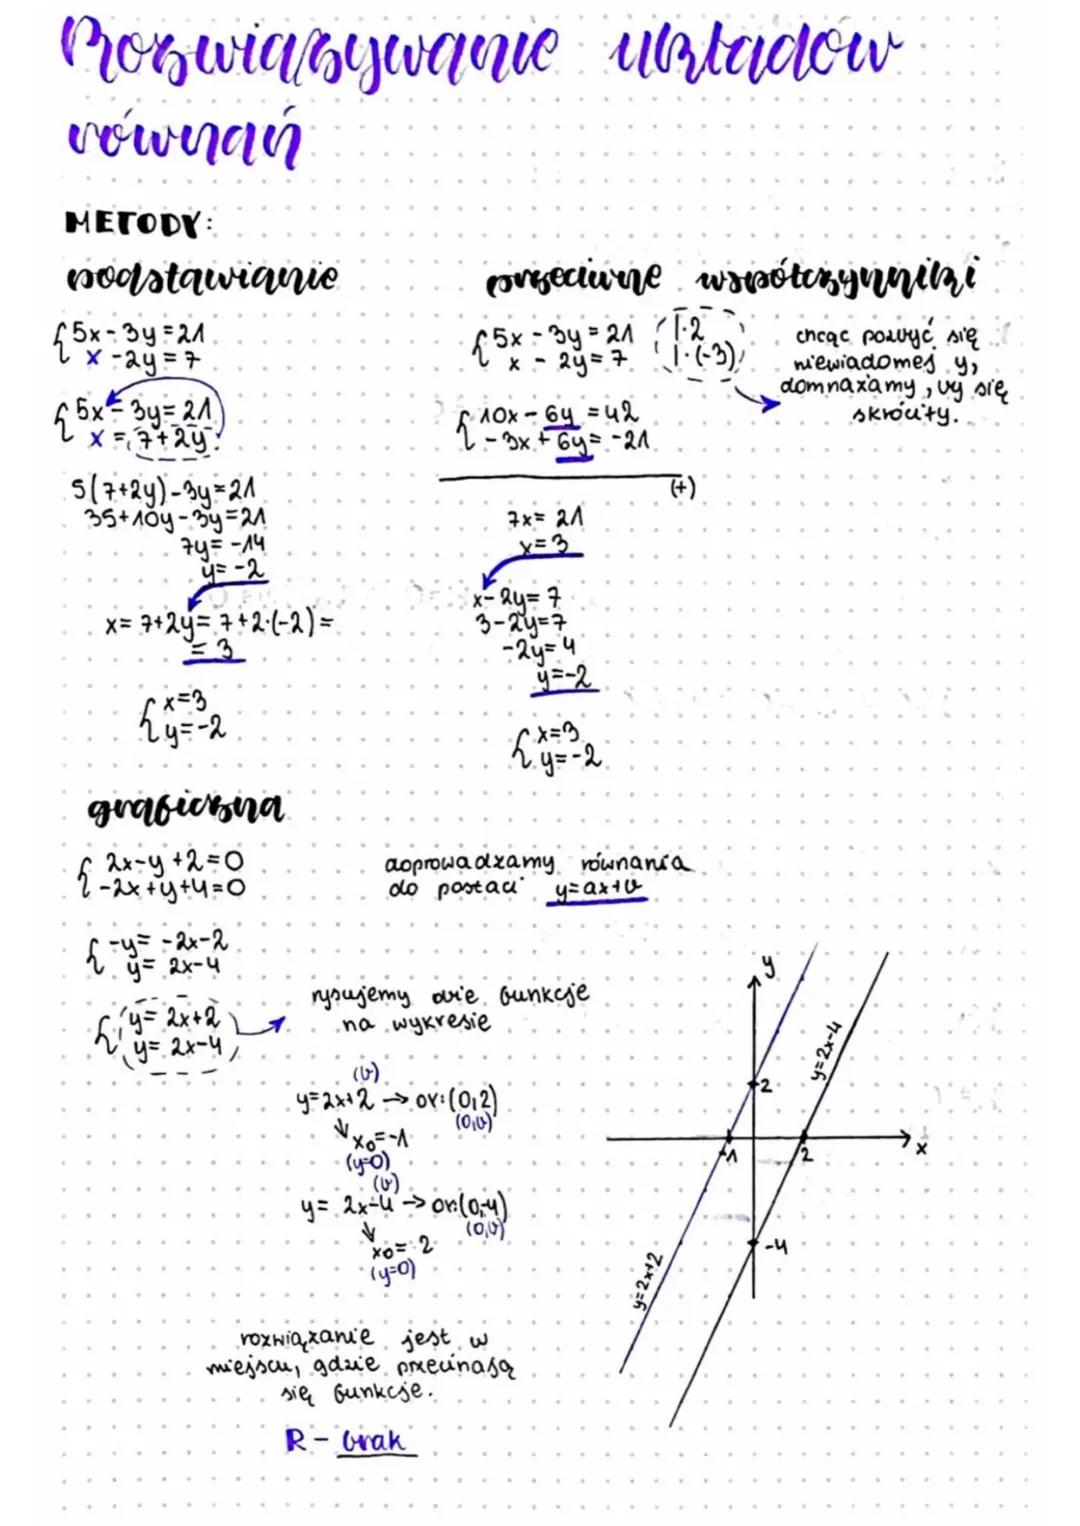 Rozwiązywanie układów
równań
METODY:
podstawianie
{5x - 3y = 21
x - 2y = 7
{5x - 3y = 21
x = 7 + 2y
5(7+2y) - 3y = 21
35 + 10y - 3y = 21
7y = -14
y = -2
x = 7+2y = 7+2·(-2) =
= 3
{x=3
y=-2
przeciwne współczynniki
{5x - 3y = 21 |·2
x - 2y = 7 |·(-3)
chcąc pozbyć się
niewiadomej y,
domnażamy, by się
skróciły.
{10x - 6y = 42
-3x + 6y = -21
(+)
7x = 21
x = 3
x - 2y = 7
3 - 2y = 7
-2y = 4
y = -2
{x=3
y=-2
graficzna
{2x-y+2=0
-2x+y+4=0
doprowadzamy równania
do postaci y=ax+b
{-y = -2x-2
y = 2x-4
{y = 2x+2
y = 2x-4
rysujemy obie funkcje
na wykresie
(b)
y=2x+2 → oy:(0,2)
(0,b)
x0=-1
(y=0)
(b)
y = 2x-4 → oy:(0,-4)
(0,b)
x0= 2
(y=0)
y
2
y=2x-4
-1
2
x
-4
y=2x+2
rozwiązanie jest w
miejscu, gdzie przecinają
się funkcje.
R - brak